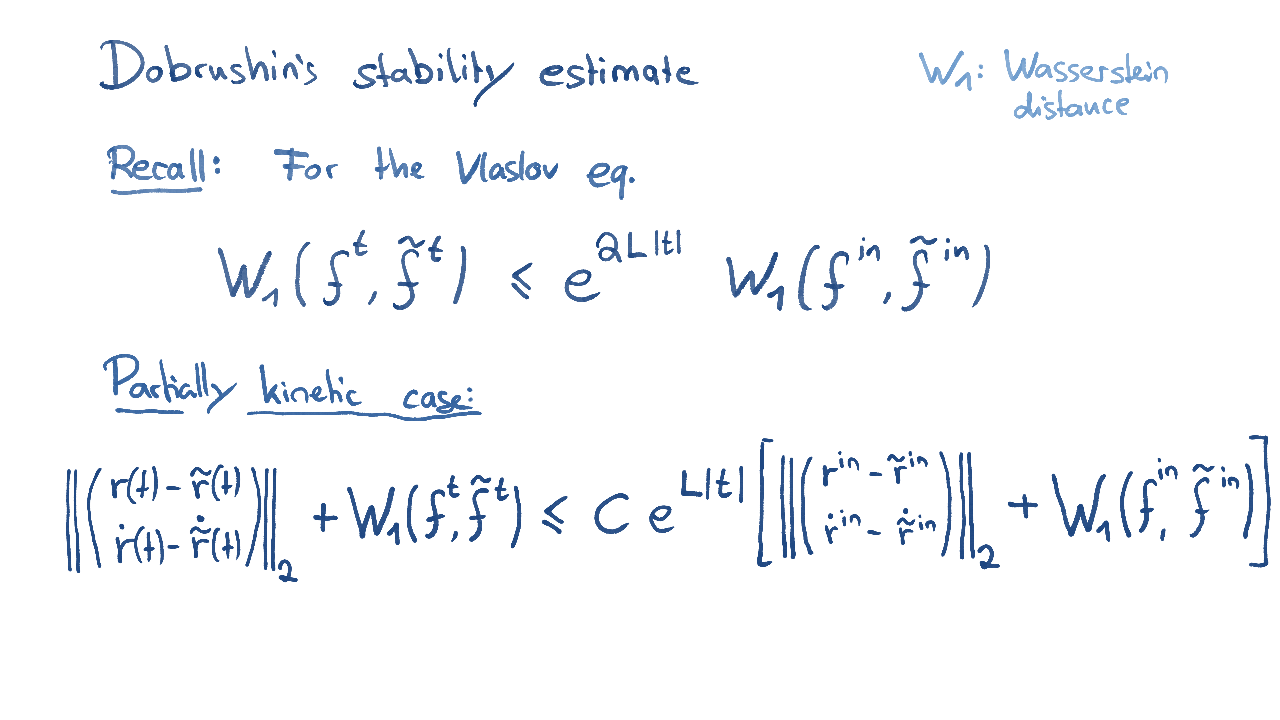 Dobrushin's stability estimate
W₁: Wasserstein
distance
Recall: For the Vlaslov eq.
W₁(fᵗ, f̃ᵗ) ⩽ e^{2L|t|} W₁(f^{in}, f̃^{in})
Partially kinetic case:
‖(r(t) - r̃(t) ; ṙ(t) - r̃̇(t))‖₂ + W₁(fᵗ, f̃ᵗ) ⩽ C e^{L|t|} [‖(r^{in} - r̃^{in} ; ṙ^{in} - r̃̇^{in})‖₂ + W₁(f^{in}, f̃^{in})]